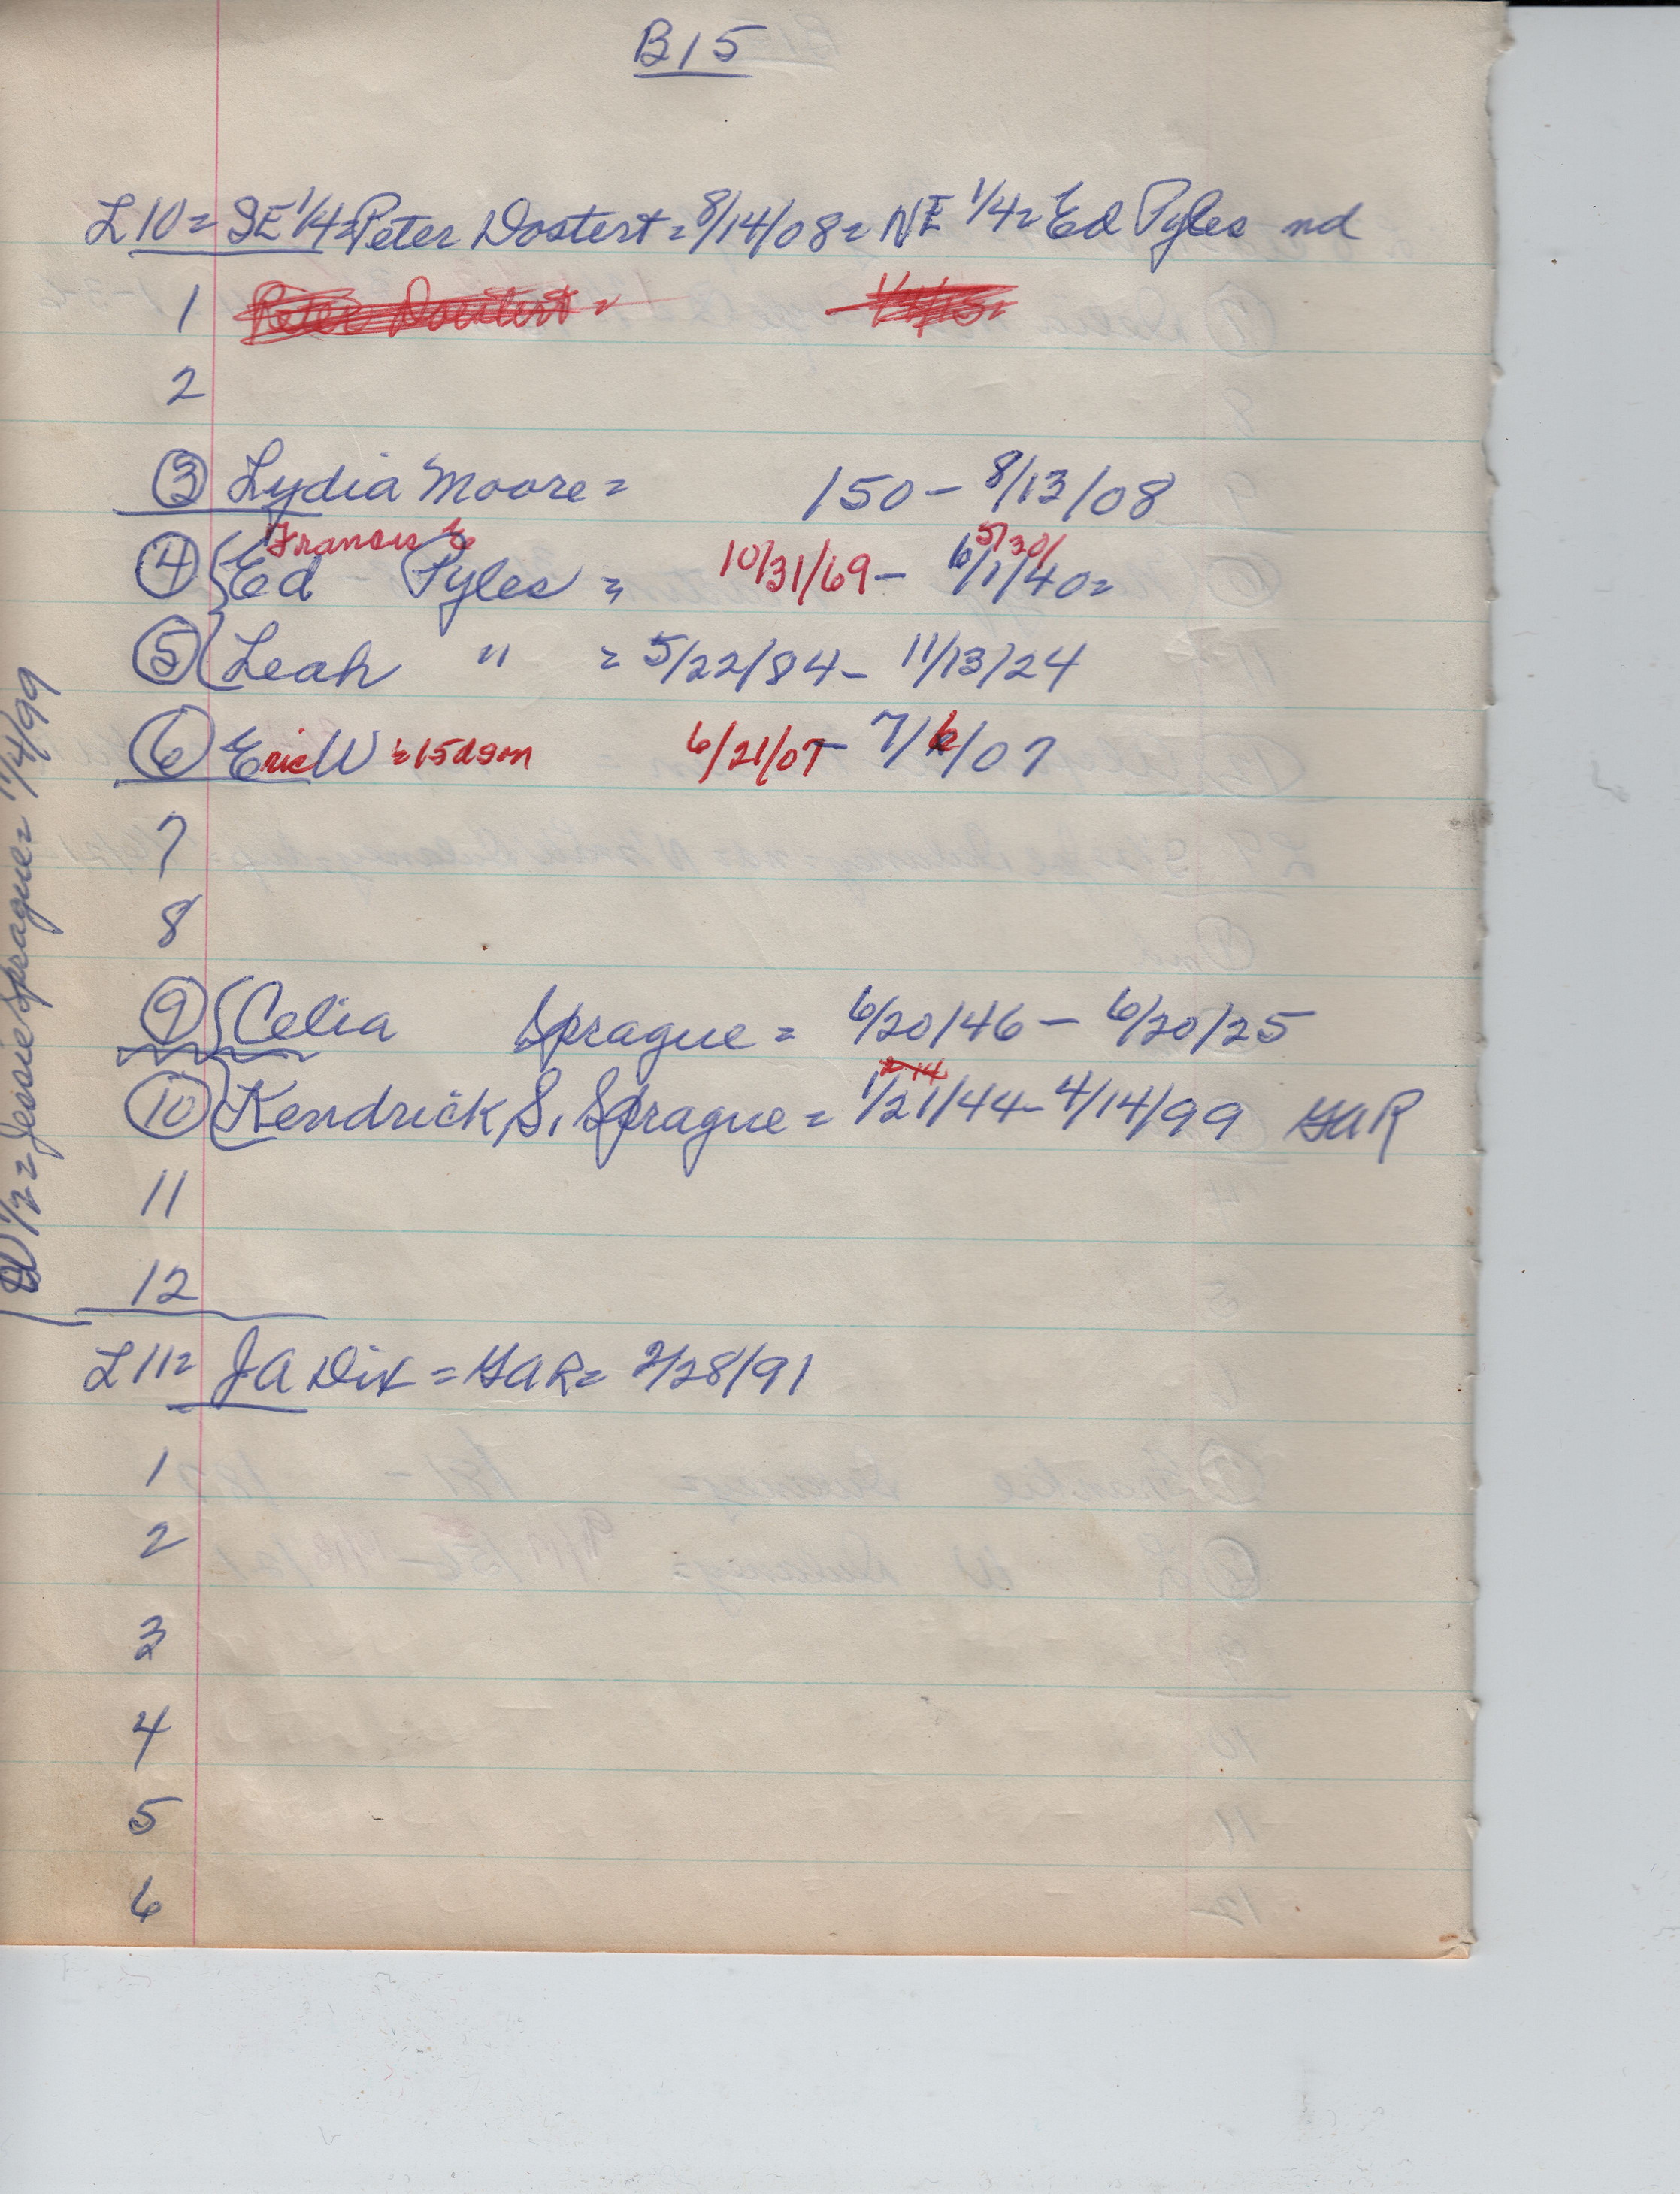 B15
L10= SE 1/4= Peter Dostert = 8/14/08 = NE 1/4= Ed Pyles nd
1 Peter Dostert =
2
3 Lydia Moore = 150 - 8/13/08
Francis E 5/30/
4 Ed - Pyles = 10/31/69 - 6/1/40=
5 Leah " = 5/22/84 - 11/13/24
6 Eric W = 15d son 6/21/07 - 7/6/07
7
8
9 Celia Sprague = 6/20/46 - 6/20/25
10 Kendrick S. Sprague = 1/21/44 - 4/14/99 GAR
11
12
W 1/2 = Jessie Sprague = 4/99
L11= JA Dix = GAR = 2/28/91
1
2
3
4
5
6